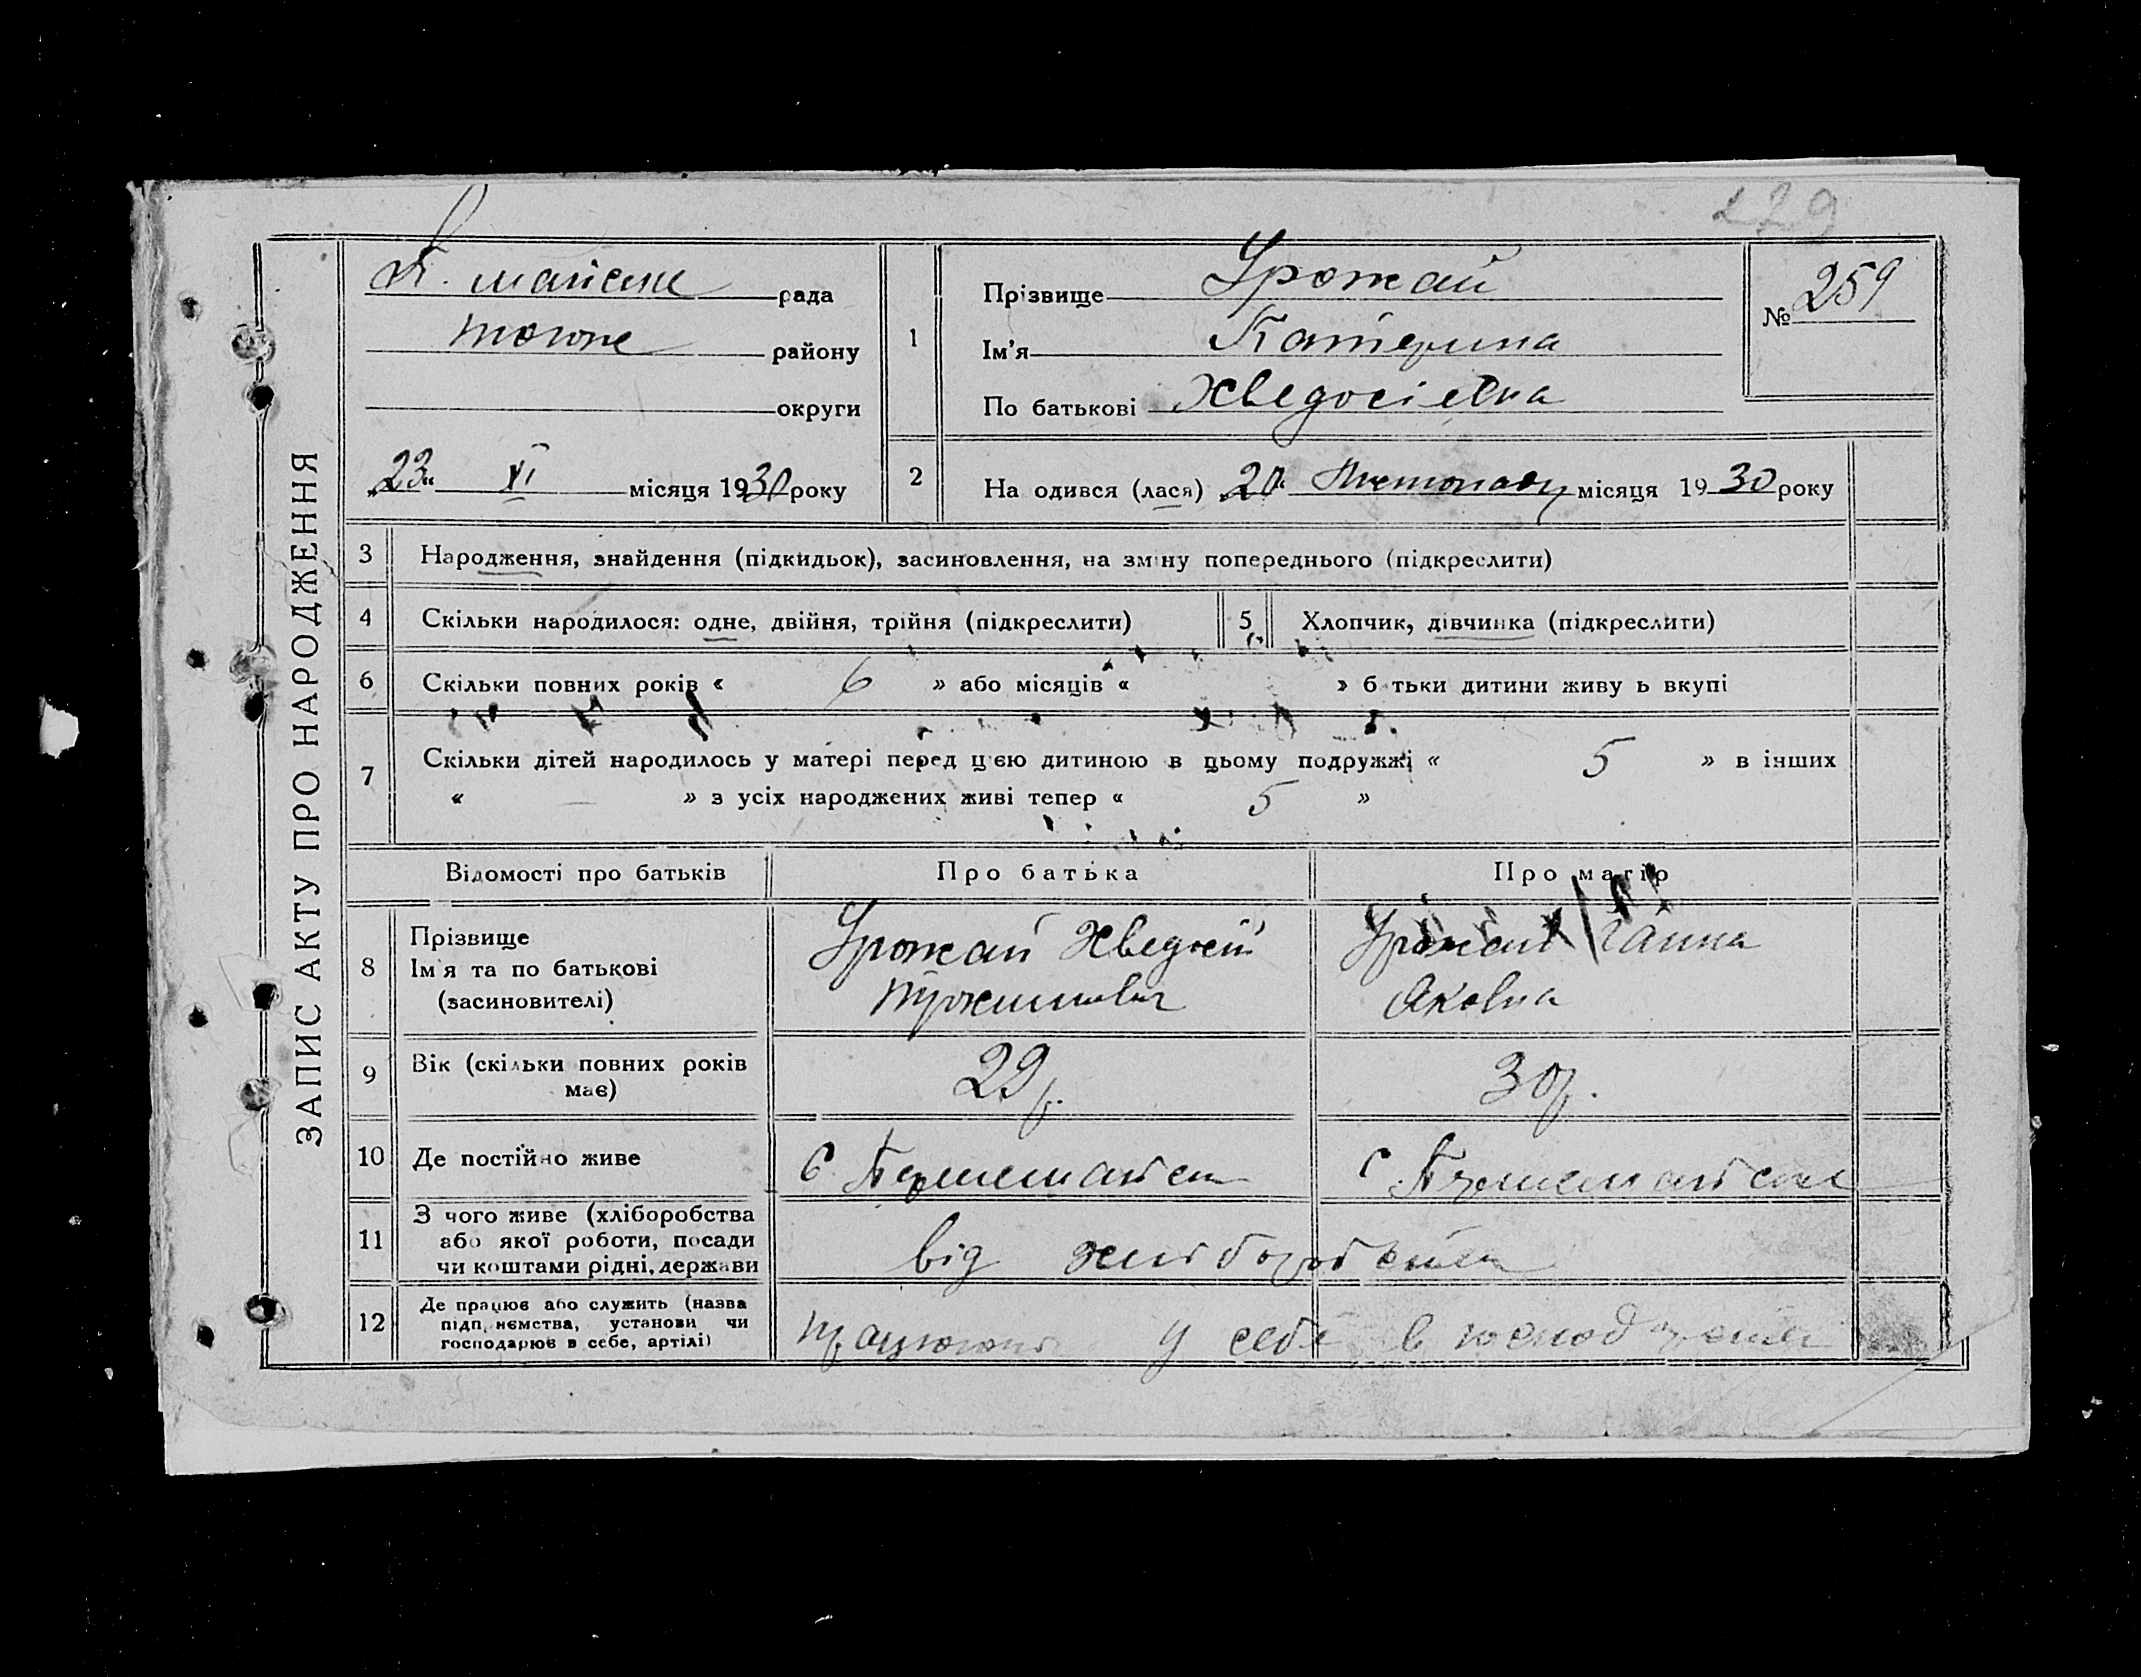 279
ЗАПИС АКТУ ПРО НАРОДЖЕННЯ
рада
району
округи
„23“ XI місяця 1930 року
1
Прізвище Урожай
Ім'я Катерина
По батькові Хведосіевна
№ 259
2
На одився (лася) „20“ Листопаду місяця 1930 року
3 Народження, знайдення (підкидьок), засиновлення, на зміну попереднього (підкреслити)
4 Скільки народилося: одне, двійня, трійня (підкреслити)
5 Хлопчик, дівчинка (підкреслити)
6 Скільки повних років « 6 » або місяців « » б тьки дитини живу ь вкупі
7 Скільки дітей народилось у матері перед цією дитиною в цьому подружжі « 5 » в інших
« — » з усіх народжених живі тепер « 5 »
Відомості про батьків Про батька Про матір
8 Прізвище
Ім'я та по батькові
(засиновителі)
Урожай Хведосій
Урожай Ганна
Яковна
9 Вік (скільки повних років
має)
29 р.
30 р.
10 Де постійно живе
с Первомайськ
с Первомайське
11 З чого живе (хліборобства
або якої роботи, посади
чи коштами рідні, держави
від хліборобства
12 Де працює або служить (назва
підп, нємства, установи чи
господарює в себе, артілі)
працюють у себе в господарстві